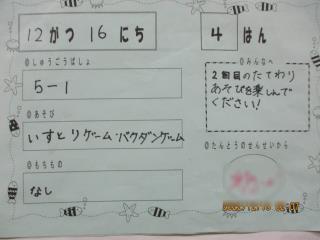 12がつ16にち
4はん
◎しゅうごうばしょ
5-1
◎あそび
いすとりゲーム・バクダンゲーム
◎もちもの
なし
◎みんなへ
2回目のたてわり
あそびを楽しんで
ください!
◎たんとうのせんせいから